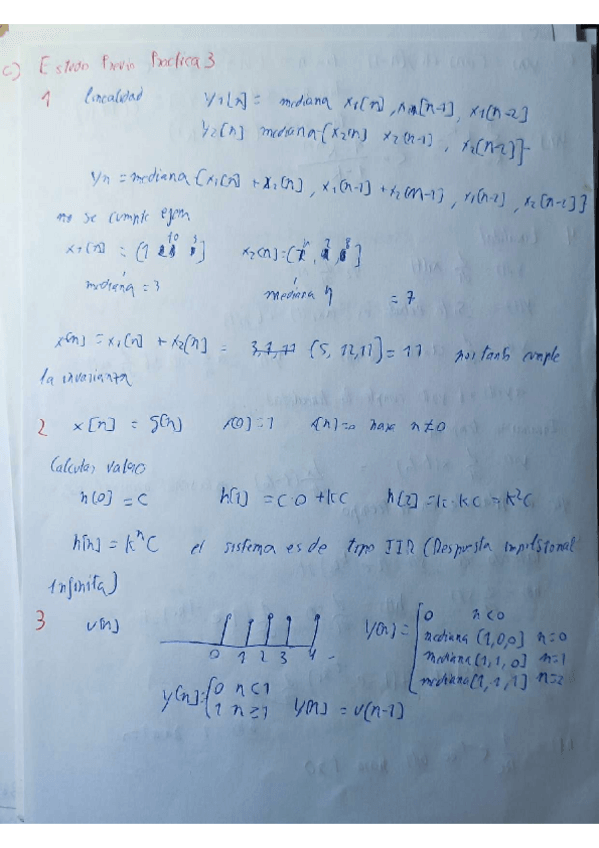 c) Estudio Previo Practica 3
1 linealidad y1[n] = mediana x1[n], x1[n-1], x1[n-2]
y2[n] mediana {x2[n] x2[n-1], x2[n-2]}
yn = mediana {x1[n] + x2[n], x1[n-1] + x2[n-1], x1[n-2], x2[n-2]}
no se cumple ejem
x1[n] = (1 10 3] x2[n] =
mediana = 3 mediana 4 = 7
x[n] = x1[n] + x2[n] = (5, 12, 11] = 11 por tanto cumple
la invarianza
2 x[n] = δ(n) δ(0) = 1 δ[n]=0 para n≠0
Calcular valaro
h[0] = C h[1] = C·0 + kC h[2] = k·kC = k²C
h[n] = kⁿC el sistema es de tipo IIR (Respuesta impulsional
Infinita)
3 u[n] y[n] = 0 n<0
mediana (1,0,0] n=0
mediana (1,1,0] n=1
mediana [1,1,1] n=2
0 1 2 3 4
y[n] = {0 n<1
1 n≥1 y[n] = u(n-1)